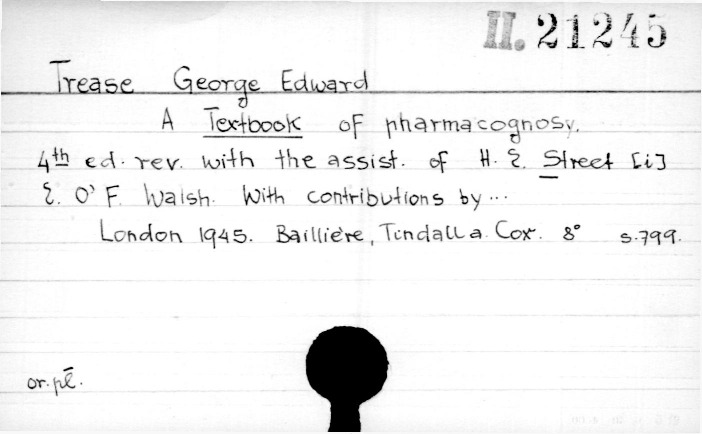 II. 21245
Trease George Edward
A Textbook of pharmacognosy.
4th ed. rev. with the assist. of H. E. Street [i]
E. O' F. Walsh. With contributions by ...
London 1945. Baillière, Tindall a. Cox. 8° s.799.
or. pē.